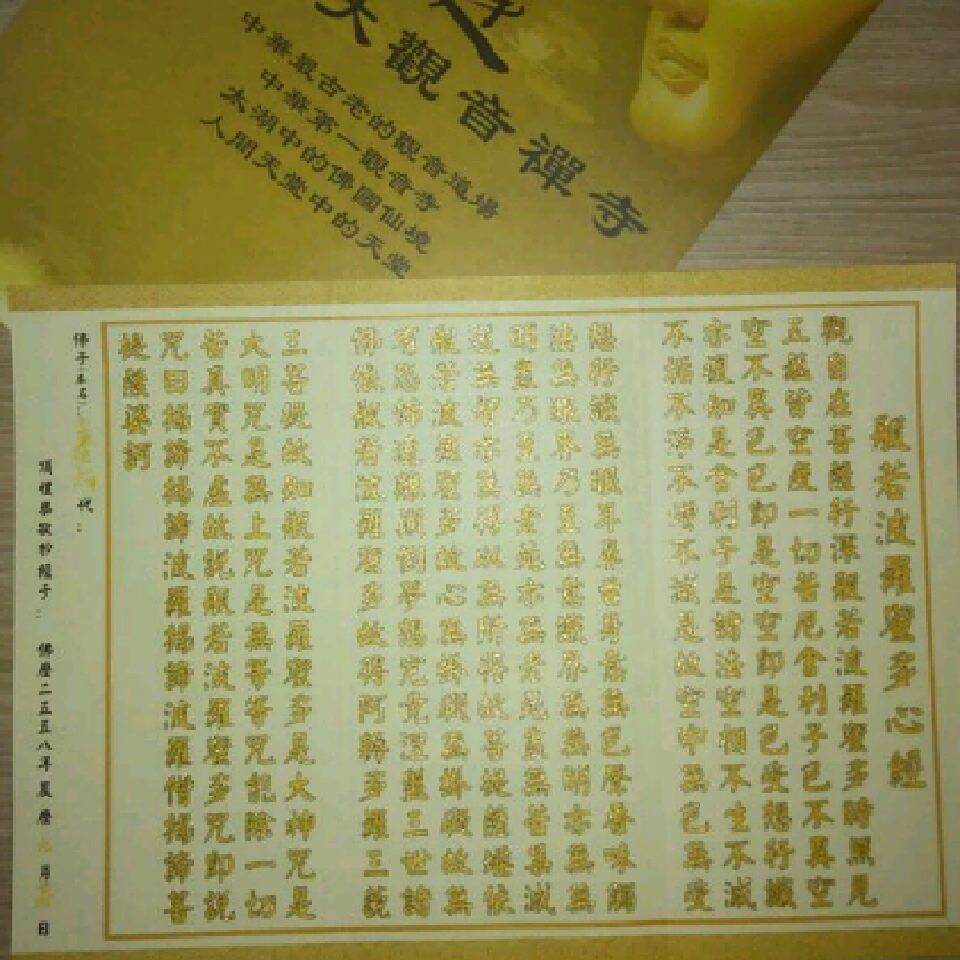 大觀音禪寺
中華最古老的觀音道場
中華第一觀音寺
太湖中的佛國仙境
人間天堂中的天堂
般若波羅蜜多心經
觀自在菩薩行深般若波羅蜜多時照見
五蘊皆空度一切苦厄舍利子色不異空
空不異色色即是空空即是色受想行識
亦復如是舍利子是諸法空相不生不滅
不垢不淨不增不減是故空中無色無受
想行識無眼耳鼻舌身意無色聲香味觸
法無眼界乃至無意識界無無明亦無無
明盡乃至無老死亦無老死盡無苦集滅
道無智亦無得以無所得故菩提薩埵依
般若波羅蜜多故心無掛礙無掛礙故無
有恐怖遠離顛倒夢想究竟涅槃三世諸
佛依般若波羅蜜多故得阿耨多羅三藐
三菩提故知般若波羅蜜多是大神咒是
大明咒是無上咒是無等等咒能除一切
苦真實不虛故說般若波羅蜜多咒即說
咒曰揭諦揭諦波羅揭諦波羅僧揭諦菩
提薩婆訶
佛子(本名): 代:
頂禮恭敬抄經子: 佛曆二五五八年農曆 月 日